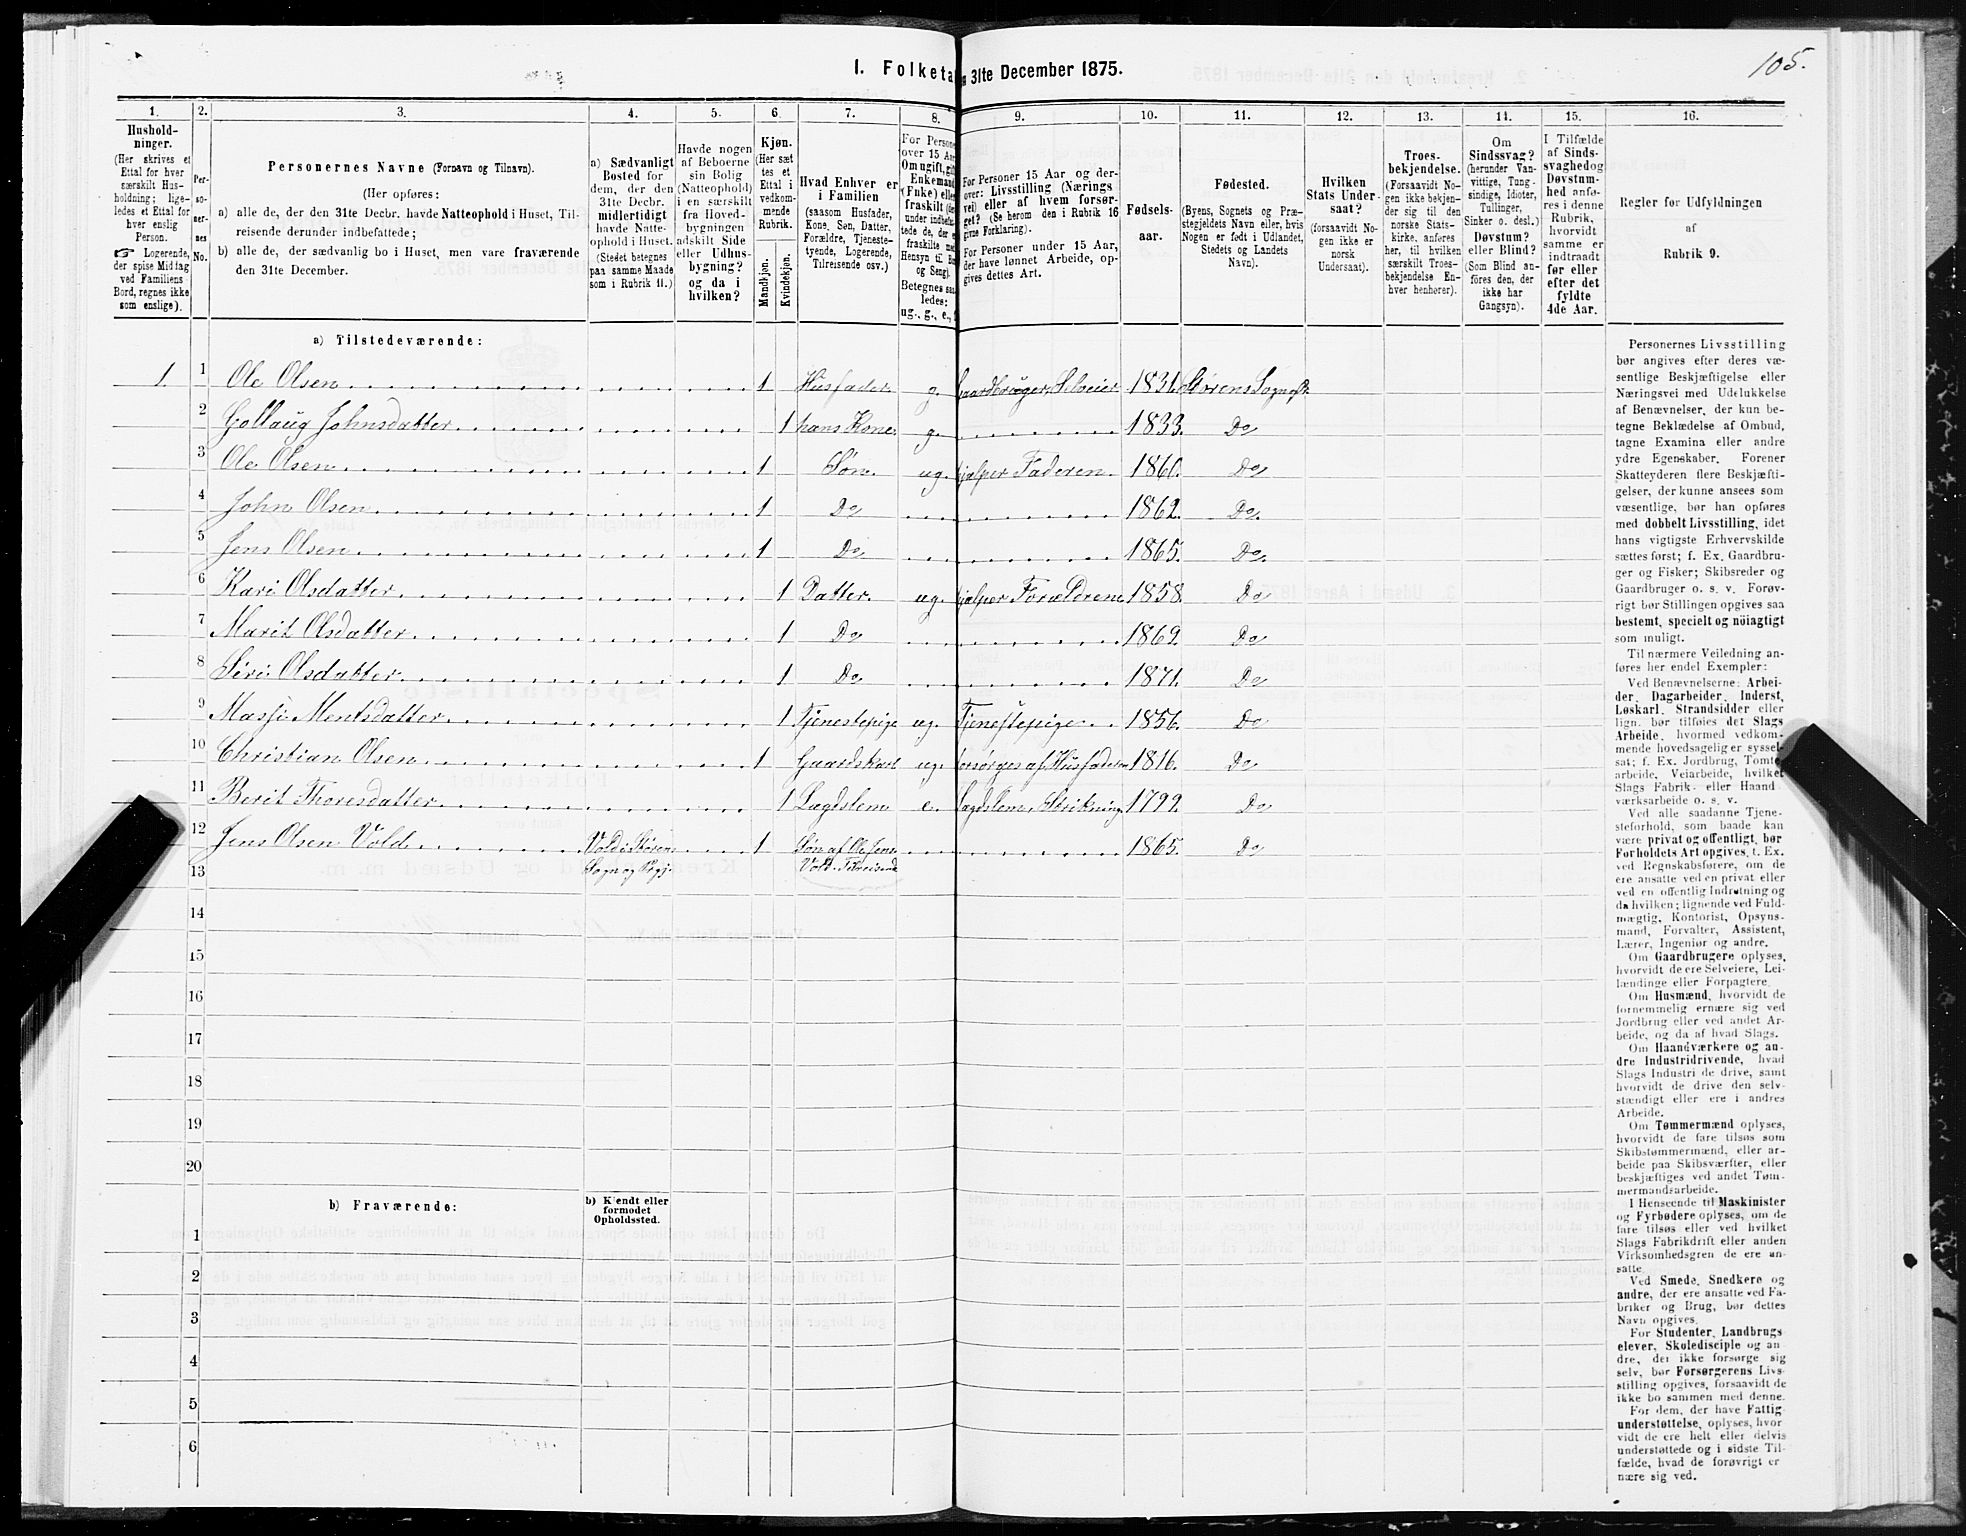 105.
1. Folketa
n 31te December 1875.
1. 2. 3. 4. 5. 6. 7. 8. 9. 10. 11. 12. 13. 14. 15. 16.
Hushold-
ninger.
(Her skrives et
Ettal for hver
særskilt Hus-
holdning; lige-
ledes et Ettal for
hver enslig
Person.
☞ Logerende,
der spise Middag
ved Familiens
Bord, regnes ikke
som enslige).
Per-
so-
ner-
nes
No.
Personernes Navne (Fornavn og Tilnavn).
(Her opføres:
a) alle de, der den 31te Decbr. havde Natteophold i Huset, Til-
reisende derunder indbefattede;
b) alle de, der sædvanlig bo i Huset, men vare fraværende
den 31te December.
a) Sædvanligt
Bosted for
dem, der den
31te Decbr.
midlertidigt
havde Natte-
ophold i Huset.
(Stedet betegnes
paa samme Maade
som i Rubrik 11.)
Havde nogen
af Beboerne
sin Bolig
(Natteophold)
i en særskilt
fra Hoved-
bygningen
adskilt Side
eller Udhus-
bygning?
og da i
hvilken?
Kjøn.
(Her sæt
tes et
Ettal i
vedkom-
mende
Rubrik.
Mandkjøn.
Kvindekjøn.
Hvad Enhver er
i Familien
(saasom Husfader,
Kone, Søn, Datter,
Forældre, Tjeneste-
tyende, Logerende,
Tilreisende osv.)
For Persone
over 15 Aar
Om ugift, gif
Enkemand
(Enke) eller
fraskilt (der
under indbefat-
tede de, der e
fraskilte med
Hensyn til Bo
og Seng).
Betegnes saa
ledes:
ug., g., e., f
For Personer 15 Aar og der-
over: Livsstilling (Nærings
vei) eller af hvem forsør-
get? (Se herom den i Rubrik 16
givne Forklaring).
For Personer under 15 Aar,
der have lønnet Arbeide, op-
gives dettes Art.
Fødsels-
aar.
Fødested.
(Byens, Sognets og Præ-
stegjeldets Navn eller, hvis
Nogen er født i Udlandet,
Stedets og Landets
Navn).
Hvilken
Stats Under-
saat?
(forsaavidt No-
gen ikke er
norsk
Undersaat).
Troes-
bekjendelse.
(Forsaavidt No-
gen ikke bekjen-
der sig til den
norske Stats-
kirke, anføres
her, til hvilken
særskilt Troes-
bekjendelse En-
hver henhører).
Om
Sindssvag?
(herunder Van-
vittige, Tung-
sindige, Idioter,
Tullinger,
Sinker o. desl.)
Døvstum?
eller Blind?
(Som Blind an-
føres den, der
ikke har
Gangsyn).
I Tilfælde
af Sinds-
svaghedog
Døvstum-
hed anfø-
res i denne
Rubrik,
hvorvidt
samme er
indtraadt
før eller
efter det
fyldte
4de Aar.
Regler for Udfyldningen
af
Rubrik 9.
a) Tilstedeværende:
1. 1 Ole Olsen 1 Husfader g. Gaardbruger, Selveier 1831. Størens Sogn
2 Gollaug Johnsdatter 1 hans Kone g. 1833. Do
3 Ole Olsen 1 Søn ug. hjælper Faderen 1860. Do
4 John Olsen 1 Do 1862. Do.
5 Jens Olsen 1 Do 1865. Do.
6 Kari Olsdatter 1 Datter. ug. hjælper Forældrene 1858. Do
7 Marit Olsdatter 1 Do 1869. Do
8 Siri Olsdatter 1 Do 1871. Do
9 Massi Mentsdatter 1 Tjenestepige ug. Tjenestepige 1856. Do
10 Christian Olsen 1 Gaardskarl ug. forsørges af Husfaderen 1816. Do
11 Berit Thoresdatter 1 Lægdslem e. Lægdslem, Strikning 1799. Do
12 Jens Olsen Vold Vold i Støren 1 Søn af Ole Jens. 1865. Do
13 Sogn og Prgj. Vold. Tilreisende
14
15
16
17
18
19
20
b) Fraværende:
b) Kjendt eller
formodet
Opholdssted.
1
2
3
4
5
6
Personernes Livsstilling
bør angives efter deres væ-
sentlige Beskjæftigelse eller
Næringsvei med Udelukkelse
af Benævnelser, der kun be-
tegne Beklædelse af Ombud,
tagne Examina eller andre
ydre Egenskaber. Forener
Skatteyderen flere Beskjæfti-
gelser, der kunne ansees som
væsentlige, bør han opføres
med dobbelt Livsstilling, idet
hans vigtigste Erhvervskilde
sættes først; f. Ex. Gaardbru-
ger og Fisker; Skibsreder og
Gaardbruger o. s. v. Forøv-
rigt bør Stillingen opgives saa
bestemt, specielt og nöiagtigt
som muligt.
Til nærmere Veiledning an-
føres her endel Exempler:
Ved Benævnelserne: Arbei-
der, Dagarbeider, Inderst,
Løskarl, Strandsidder eller
lign. bør tilføies det Slags
Arbeide, hvormed vedkom-
mende hovedsageliger syssel-
sat; f. Ex. Jordbrug, Tomte-
arbeide, Veiarbeide, hvilket
Slags Fabrik- eller Haand-
værksarbeide o. s. v.
Ved alle saadanne Tjene-
steforhold, som baade kan
være privat og offentligt, bør
Forholdets Art opgives, t. Ex.
ved Regnskabsførere, om de
ere ansatte ved en privat eller
ved en offentlig Indretning og
da hvilken; lignende ved Fuld-
mægtig, Kontorist, Opsyns-
mand, Forvalter, Assistent,
Lærer, Ingeniør og andre.
Om Gaardbrugere oplyses,
hvorvidt de ere Selveiere, Lei-
lændinge eller Forpagtere.
Om Husmænd, hvorvidt de
fornemmelig ernære sig ved
Jordbrug eller ved andet Ar-
beide, og da af hvad Slags.
Om Haandværkere og an-
dre Industridrivende, hvad
Slags Industri de drive, samt
hvorvidt de drive den selv-
stændigt eller ere i andres
Arbeide.
Om Tømmermænd oplyses,
hvorvidt de fare tilsøs som
Skibstømmermænd, eller ar-
beide paa Skibsværfter, eller
beskjæftiges ved andet Tøm-
mermandsarbeide.
I Henseende til Maskinister
og Fyrbødere oplyses, om de
fare tilsøs eller ved hvilket
Slags Fabrikdrift eller anden
Virksomhedsgren de ere an-
satte.
Ved Smede, Snedkere og
andre, der ere ansatte ved Fa-
briker og Brug, bør dettes
Navn opgives.
For Studenter, Landbrugs-
elever, Skoledisciple og an-
dre, der ikke forsørge sig
selv, bør Forsørgerens Livs-
stilling opgives, forsaavidt de
ikke bo sammen med denne.
For dem, der have Fattig-
understøttelse, oplyses, hvor-
vidt de ere helt eller delvis
understøttede og i sidste Til-
fælde, hvad de forøvrigt er-
nære sig ved.